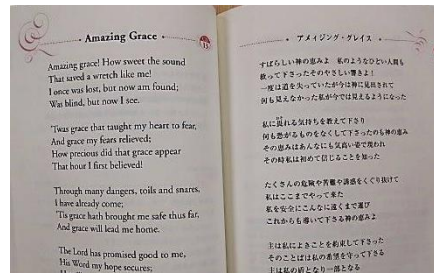 Amazing Grace
Amazing grace! How sweet the sound
That saved a wretch like me!
I once was lost, but now am found;
Was blind, but now I see.
'Twas grace that taught my heart to fear,
And grace my fears relieved;
How precious did that grace appear
That hour I first believed!
Through many dangers, toils and snares,
I have already come;
'Tis grace hath brought me safe thus far,
And grace will lead me home.
The Lord has promised good to me,
His Word my hope secures;
アメイジング・グレイス
すばらしい神の恵みよ 私のようなひどい人間も
救って下さったそのやさしい響きよ!
一度は道を失っていたが今は神に見出されて
何も見えなかった私が今では見えるようになった
私に畏れる気持ちを教えて下さり
何も恐がるものをなくして下さったのも神の恵み
その恵みはあんなにも気高い姿で現われ
その時私は初めて信じることを知った
たくさんの危険や苦難や誘惑をくぐり抜けて
私はここまでやって来た
私を安全にこんなに遠くまで運び
これからも導いて下さる神の恵みよ
主は私によきことを約束して下さった
そのことばは私の希望を守って下さる
主は私の盾となり一部となる